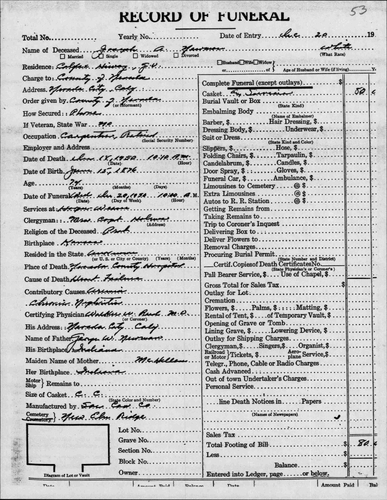 53
RECORD OF FUNERAL
Total No. Yearly No. Date of Entry Dec. 20 19
Name of Deceased Joseph A. Newman White
Married Single Widowed Divorced Husband Wife Widow (What Race)
Residence: Colfax Hiway, G.V. of Age of Husband or Wife (if living)
Charge to: County of Nevada
Address: Nevada City Calif
Order given by: County of Nevada
How Secured: Phone
If Veteran, State War no
Occupation Carpenter, Retired
(Social Security Number)
Employer and Address
Date of Death Dec. 18, 1950 10:10 A.M.
Date of Birth Jan. 15, 1876
Age 74
(Years) (Months) (Days)
Date of Funeral Dec. 20, 1950 10:00 A.M.
(Date) (Day of Week) (Hour)
Services at
Clergyman Mrs. Capt. Holmes
Religion of the Deceased Prot
Birthplace Kansas
Resided in the State
(U. S. or City or County) (Years) (Months)
Place of Death Nevada County Hospital
Cause of Death Heart Failure
Contributory Causes Uremia
Chronic Nephritis
Certifying Physician M.D.
(or Coroner)
His Address Nevada City Calif
Name of Father George W. Newman
His Birthplace Indiana
Maiden Name of Mother McMillan
Her Birthplace Indiana
Motor Ship Remains to
Size of Casket C. C.
(State Color and Number)
Manufactured by
Cemetery Crematory New Elm Ridge
Lot No.
Grave No.
Section No.
Block No.
Owner
Diagram of Lot or Vault
Complete Funeral (except outlays)
Casket 80
Burial Vault or Box
(State Kind)
Embalming Body
(Name of Embalmer)
Barber, Hair Dressing,
Dressing Body, Underwear,
Suit or Dress
(State Kind and Color)
Slippers, Hose,
Folding Chairs, Tarpaulin,
Candelabrum, Candles,
Door Spray, Gloves,
Funeral Car, Ambulance,
Limousines to Cemetery @
Extra Limousines @
Autos to R. R. Station @
Getting Remains from
Taking Remains to
Trip to Coroner's Inquest
Delivering Box to
Deliver Flowers to
Removal Charges
Procuring Burial Permit
(State Number and District)
Certif. Copies of Death Certificate No.
(State Physician's or Coroner's)
Pall Bearer Service, Use of Chapel,
Gross Total for Sales Tax
Outlay for Lot
Cremation
Flowers, Palms, Matting,
Rental of Tent, of Temporary Vault,
Opening of Grave or Tomb
Lining Grave, Lowering Device,
Outlay for Shipping Charges
Clergyman, Singers, Organist,
Railroad or Motor Tickets, Aeroplane Service,
Telegr., Phone, Cable or Radio Charges
Cash Advanced
Out of town Undertaker's Charges
Personal Service
line Death Notices in Papers
(Names of Newspapers)
Sales Tax
Total Footing of Bill 80
Less
Balance
Entered into Ledger, page or below.
Amount Paid Balance